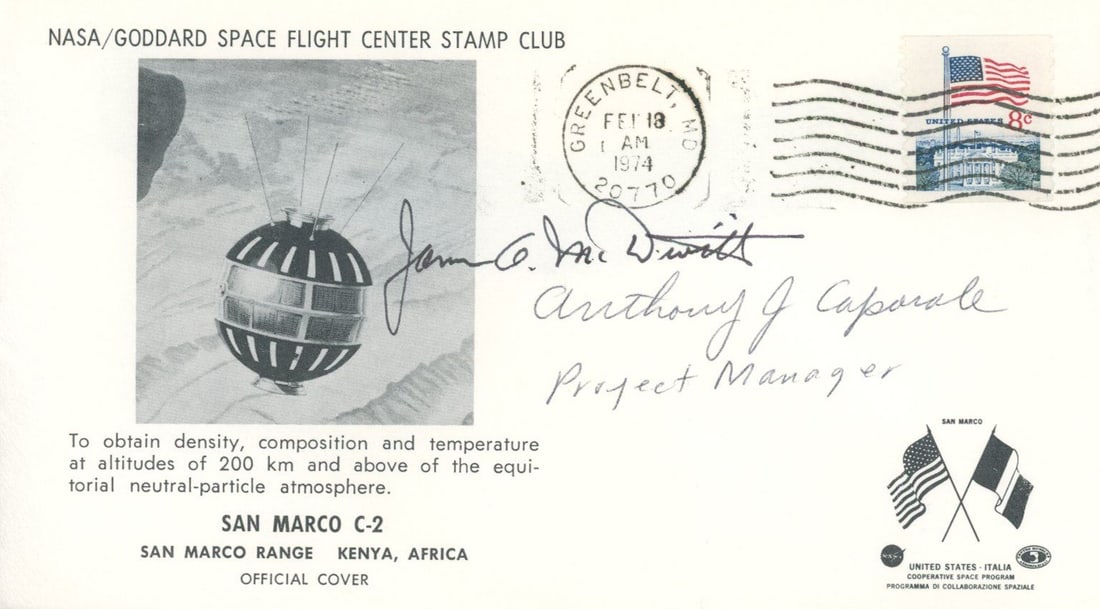 NASA/GODDARD SPACE FLIGHT CENTER STAMP CLUB
GREENBELT, MD
FEB 18
AM
1974
20770
UNITED STATES 8c
James C. McDivitt
Anthony J Caporale
Project Manager
To obtain density, composition and temperature
at altitudes of 200 km and above of the equi-
torial neutral-particle atmosphere.
SAN MARCO C-2
SAN MARCO RANGE KENYA, AFRICA
OFFICIAL COVER
SAN MARCO
NASA
UNITED STATES - ITALIA
COOPERATIVE SPACE PROGRAM
PROGRAMMA DI COLLABORAZIONE SPAZIALE